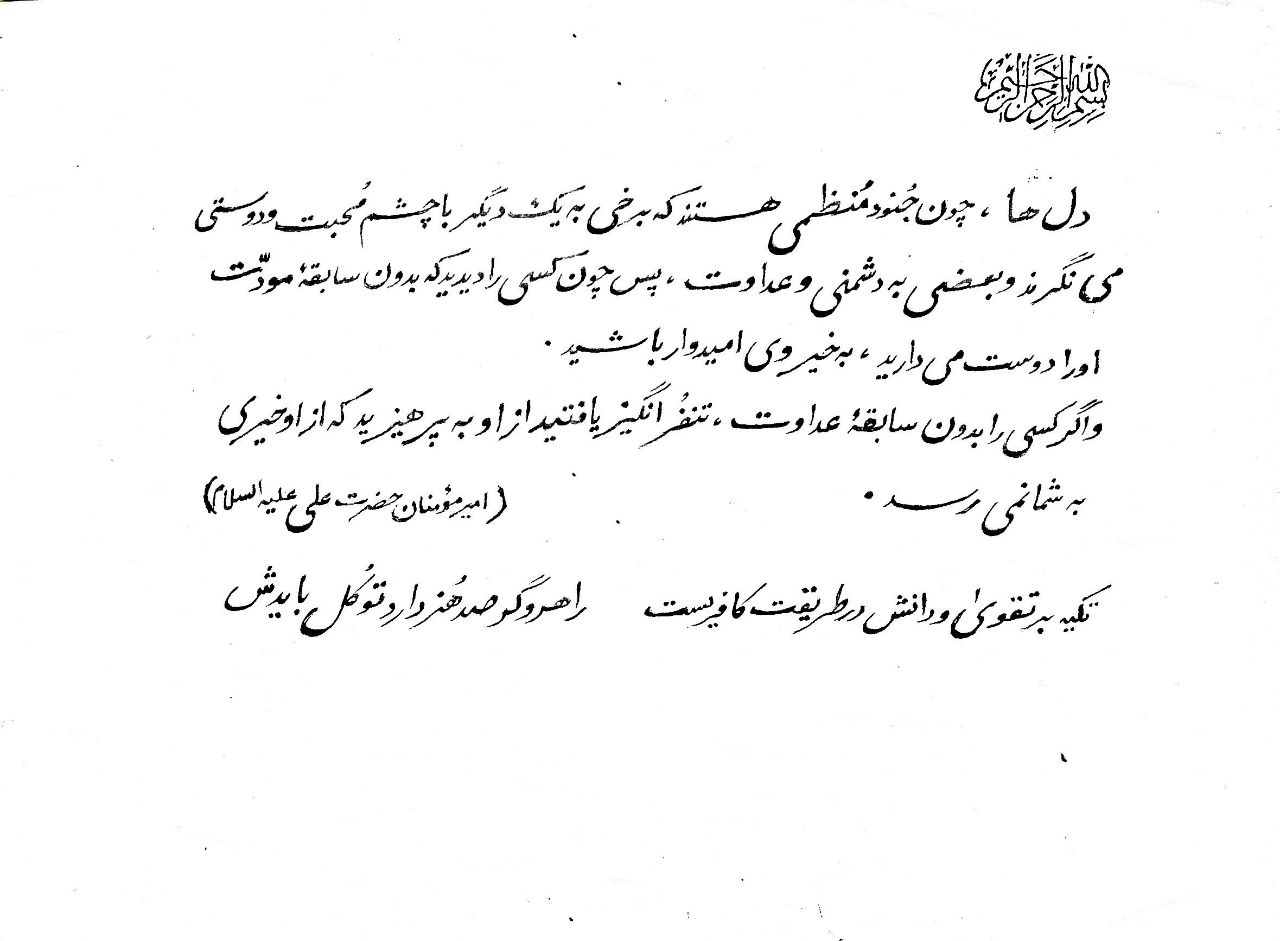 بسم الله الرحمن الرحیم
دل ها ، چون جُنود مُنظمی هستند که برخی به یک دیگر با چشم مُحبت و دوستی
می نگرند و بعضی به دشمنی و عداوت ، پس چون کسی را دیدید که بدون سابقهٔ مودّت
او را دوست می دارید ، به خیر وی امیدوار باشید .
و اگر کسی را بدون سابقهٔ عداوت ، تنفُر انگیز یافتید از او به پرهیزید که از او خیری
به شما نمی رسد . (امیر مؤمنان حضرت علی علیه السلام)
تکیه بر تقوی و دانش در طریقت کافریست راهرو گر صد هُنر دارد توُکل بایدش